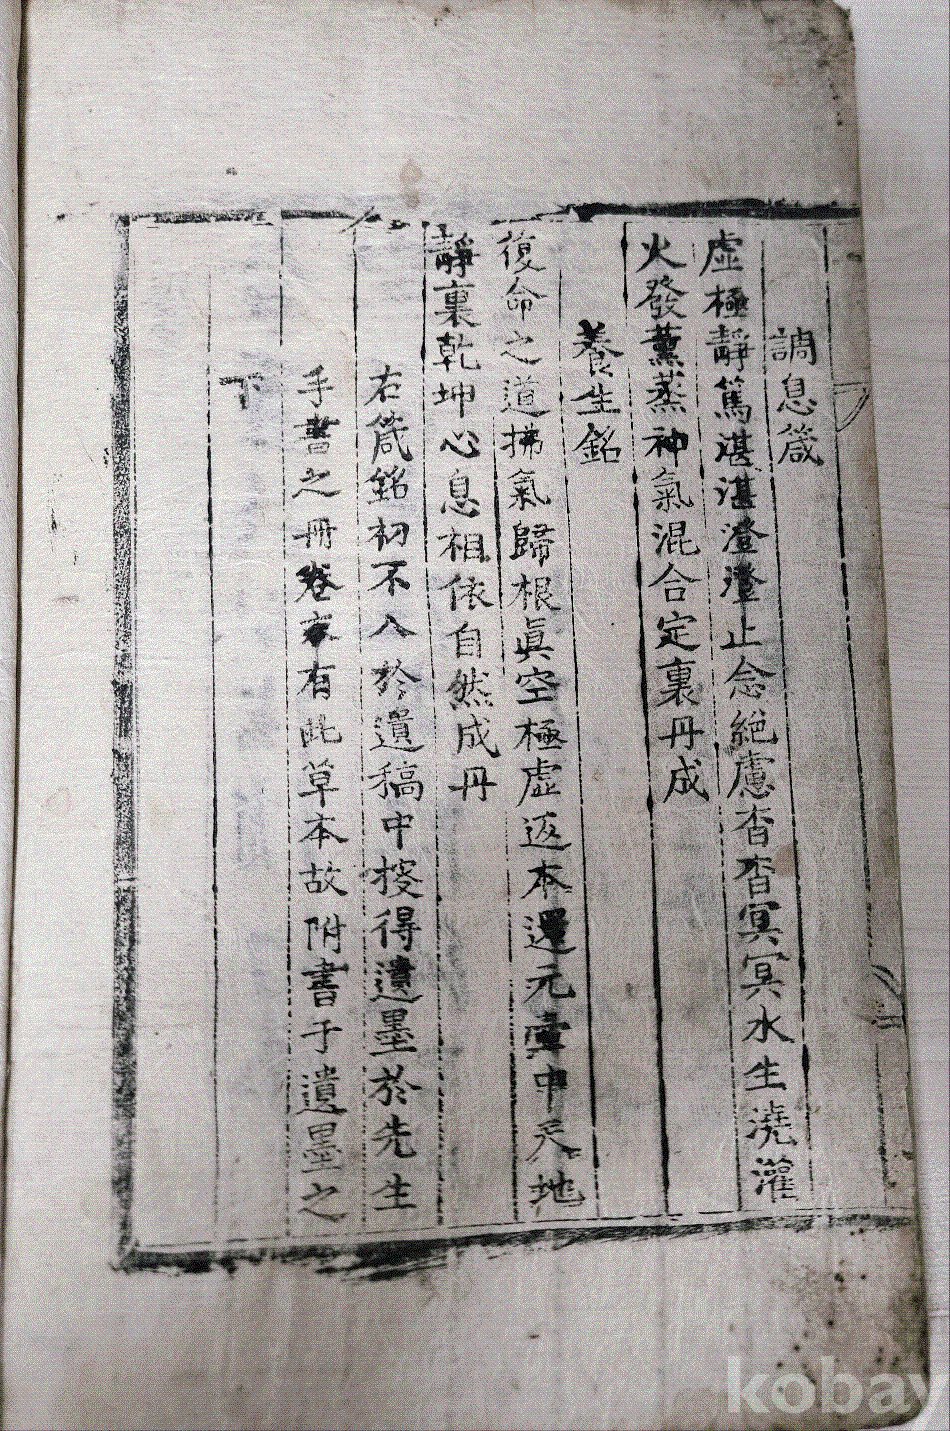 調息箴
虛極靜篤湛湛澄澄止念絕慮杳杳冥冥水生澆灌
火發薰蒸神氣混合定裏丹成
養生銘
復命之道拂氣歸根眞空極虛返本還元壺中天地
靜裏乾坤心息相依自然成丹
右箴銘初不入於遺稿中搜得遺墨於先生
手書之冊卷末有此草本故附書于遺墨之
下
kobay